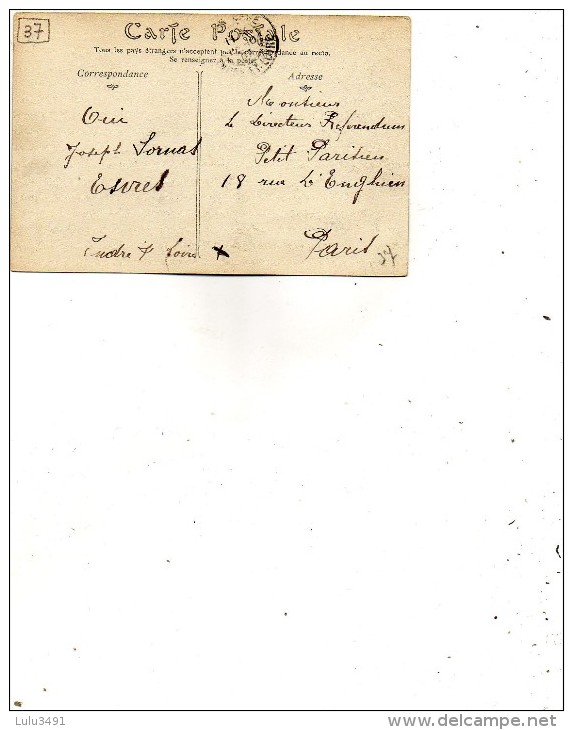 37
Carte Postale
Tous les pays étrangers n'acceptent pas la correspondance au recto.
Se renseigner à la poste
Correspondance
Adresse
Oui
Joseph Sornas
Esvres
Indre & Loire
Monsieur
Le Directeur Referendum
Petit Parisien
18 rue d'Enghien
Paris
37
Lulu3491
www.delcampe.net